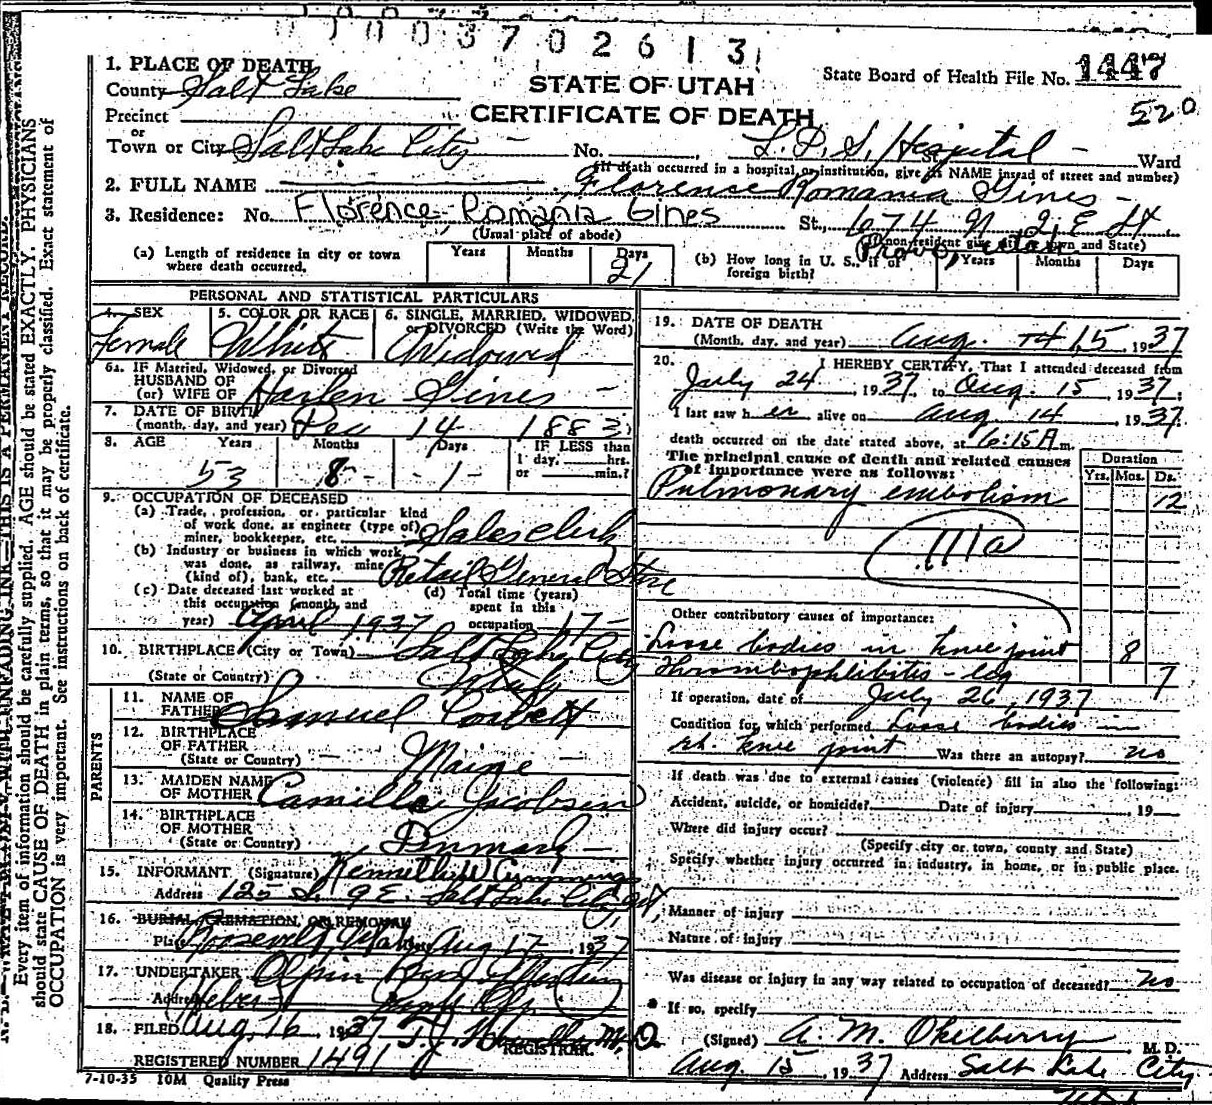 0 0 0 0 3 7 0 2 6 1 3
1. PLACE OF DEATH
County Salt Lake
STATE OF UTAH
CERTIFICATE OF DEATH
State Board of Health File No. 1447
520
Precinct
or
Town or City Salt Lake City No. L. D. S. Hospital St. Ward
(If death occurred in a hospital, or institution, give its NAME instead of street and number)
2. FULL NAME Florence Romania Gines
3. Residence: No. Florence Romania Gines St., 674 N 2 E St
(Usual place of abode) (If nonresident give city or town and State)
Provo, Utah
(a) Length of residence in city or town where death occurred. Years Months Days 21
(b) How long in U. S., if of foreign birth? Years Months Days
PERSONAL AND STATISTICAL PARTICULARS
4. SEX Female
5. COLOR OR RACE White
6. SINGLE, MARRIED, WIDOWED, or DIVORCED (Write the Word) Widowed
6a. IF Married, Widowed, or Divorced
HUSBAND OF
(or) WIFE OF Harlen Gines
7. DATE OF BIRTH
(month, day, and year) Dec 14 1883
8. AGE Years 53 Months 8 Days 1 IF LESS than 1 day, hrs. or min.?
9. OCCUPATION OF DECEASED
(a) Trade, profession, or particular kind
of work done, as engineer (type of)
miner, bookkeeper, etc. Sales clerk
(b) Industry or business in which work
was done, as railway, mine
(kind of), bank, etc. Retail General Store
(c) Date deceased last worked at
this occupation (month and
year) April 1937
(d) Total time (years)
spent in this
occupation 17
10. BIRTHPLACE (City or Town) Salt Lake City
(State or Country) Utah
PARENTS
11. NAME OF
FATHER Samuel Corbett
12. BIRTHPLACE
OF FATHER
(State or Country) Maine
13. MAIDEN NAME
OF MOTHER Camilla Jacobsen
14. BIRTHPLACE
OF MOTHER
(State or Country) Denmark
15. INFORMANT (Signature) Kenneth W Cummings
Address 125 S. 9 E. Salt Lake City, Ut,
16. BURIAL, CREMATION, OR REMOVAL
Place Roosevelt, Utah Date Aug 17 1937
17. UNDERTAKER
Address Heber
18. FILED Aug, 16 1937 M. D.
REGISTRAR.
REGISTERED NUMBER 1491
7-10-35 10M Quality Press
19. DATE OF DEATH
(Month, day, and year) Aug. 14 15, 1937
20. I HEREBY CERTIFY, That I attended deceased from
July 24, 1937, to Aug. 15, 1937;
I last saw her alive on Aug 14 1937.
death occurred on the date stated above, at 6:15 A m.
The principal cause of death and related causes
of importance were as follows:
Duration
Yrs. Mos. Ds.
Pulmonary embolism 12
111a
Other contributory causes of importance:
Loose bodies in knee joint 8
Thrombophlebitis - leg 7
If operation, date of July 26, 1937
Condition for which performed Loose bodies in
rt. knee joint Was there an autopsy? no
If death was due to external causes (violence) fill in also the following:
Accident, suicide, or homicide? Date of injury , 19
Where did injury occur?
(Specify city or town, county and State)
Specify whether injury occurred in industry, in home, or in public place.
Manner of injury
Nature of injury
Was disease or injury in any way related to occupation of deceased? no
If so, specify
(Signed) A. M. Okelberry M. D.
Aug. 15, 1937 Address Salt Lake City
Utah
Every item of information should be carefully supplied. AGE should be stated EXACTLY. PHYSICIANS
should state CAUSE OF DEATH in plain terms, so that it may be properly classified. Exact statement of
OCCUPATION is very important. See instructions on back of certificate.